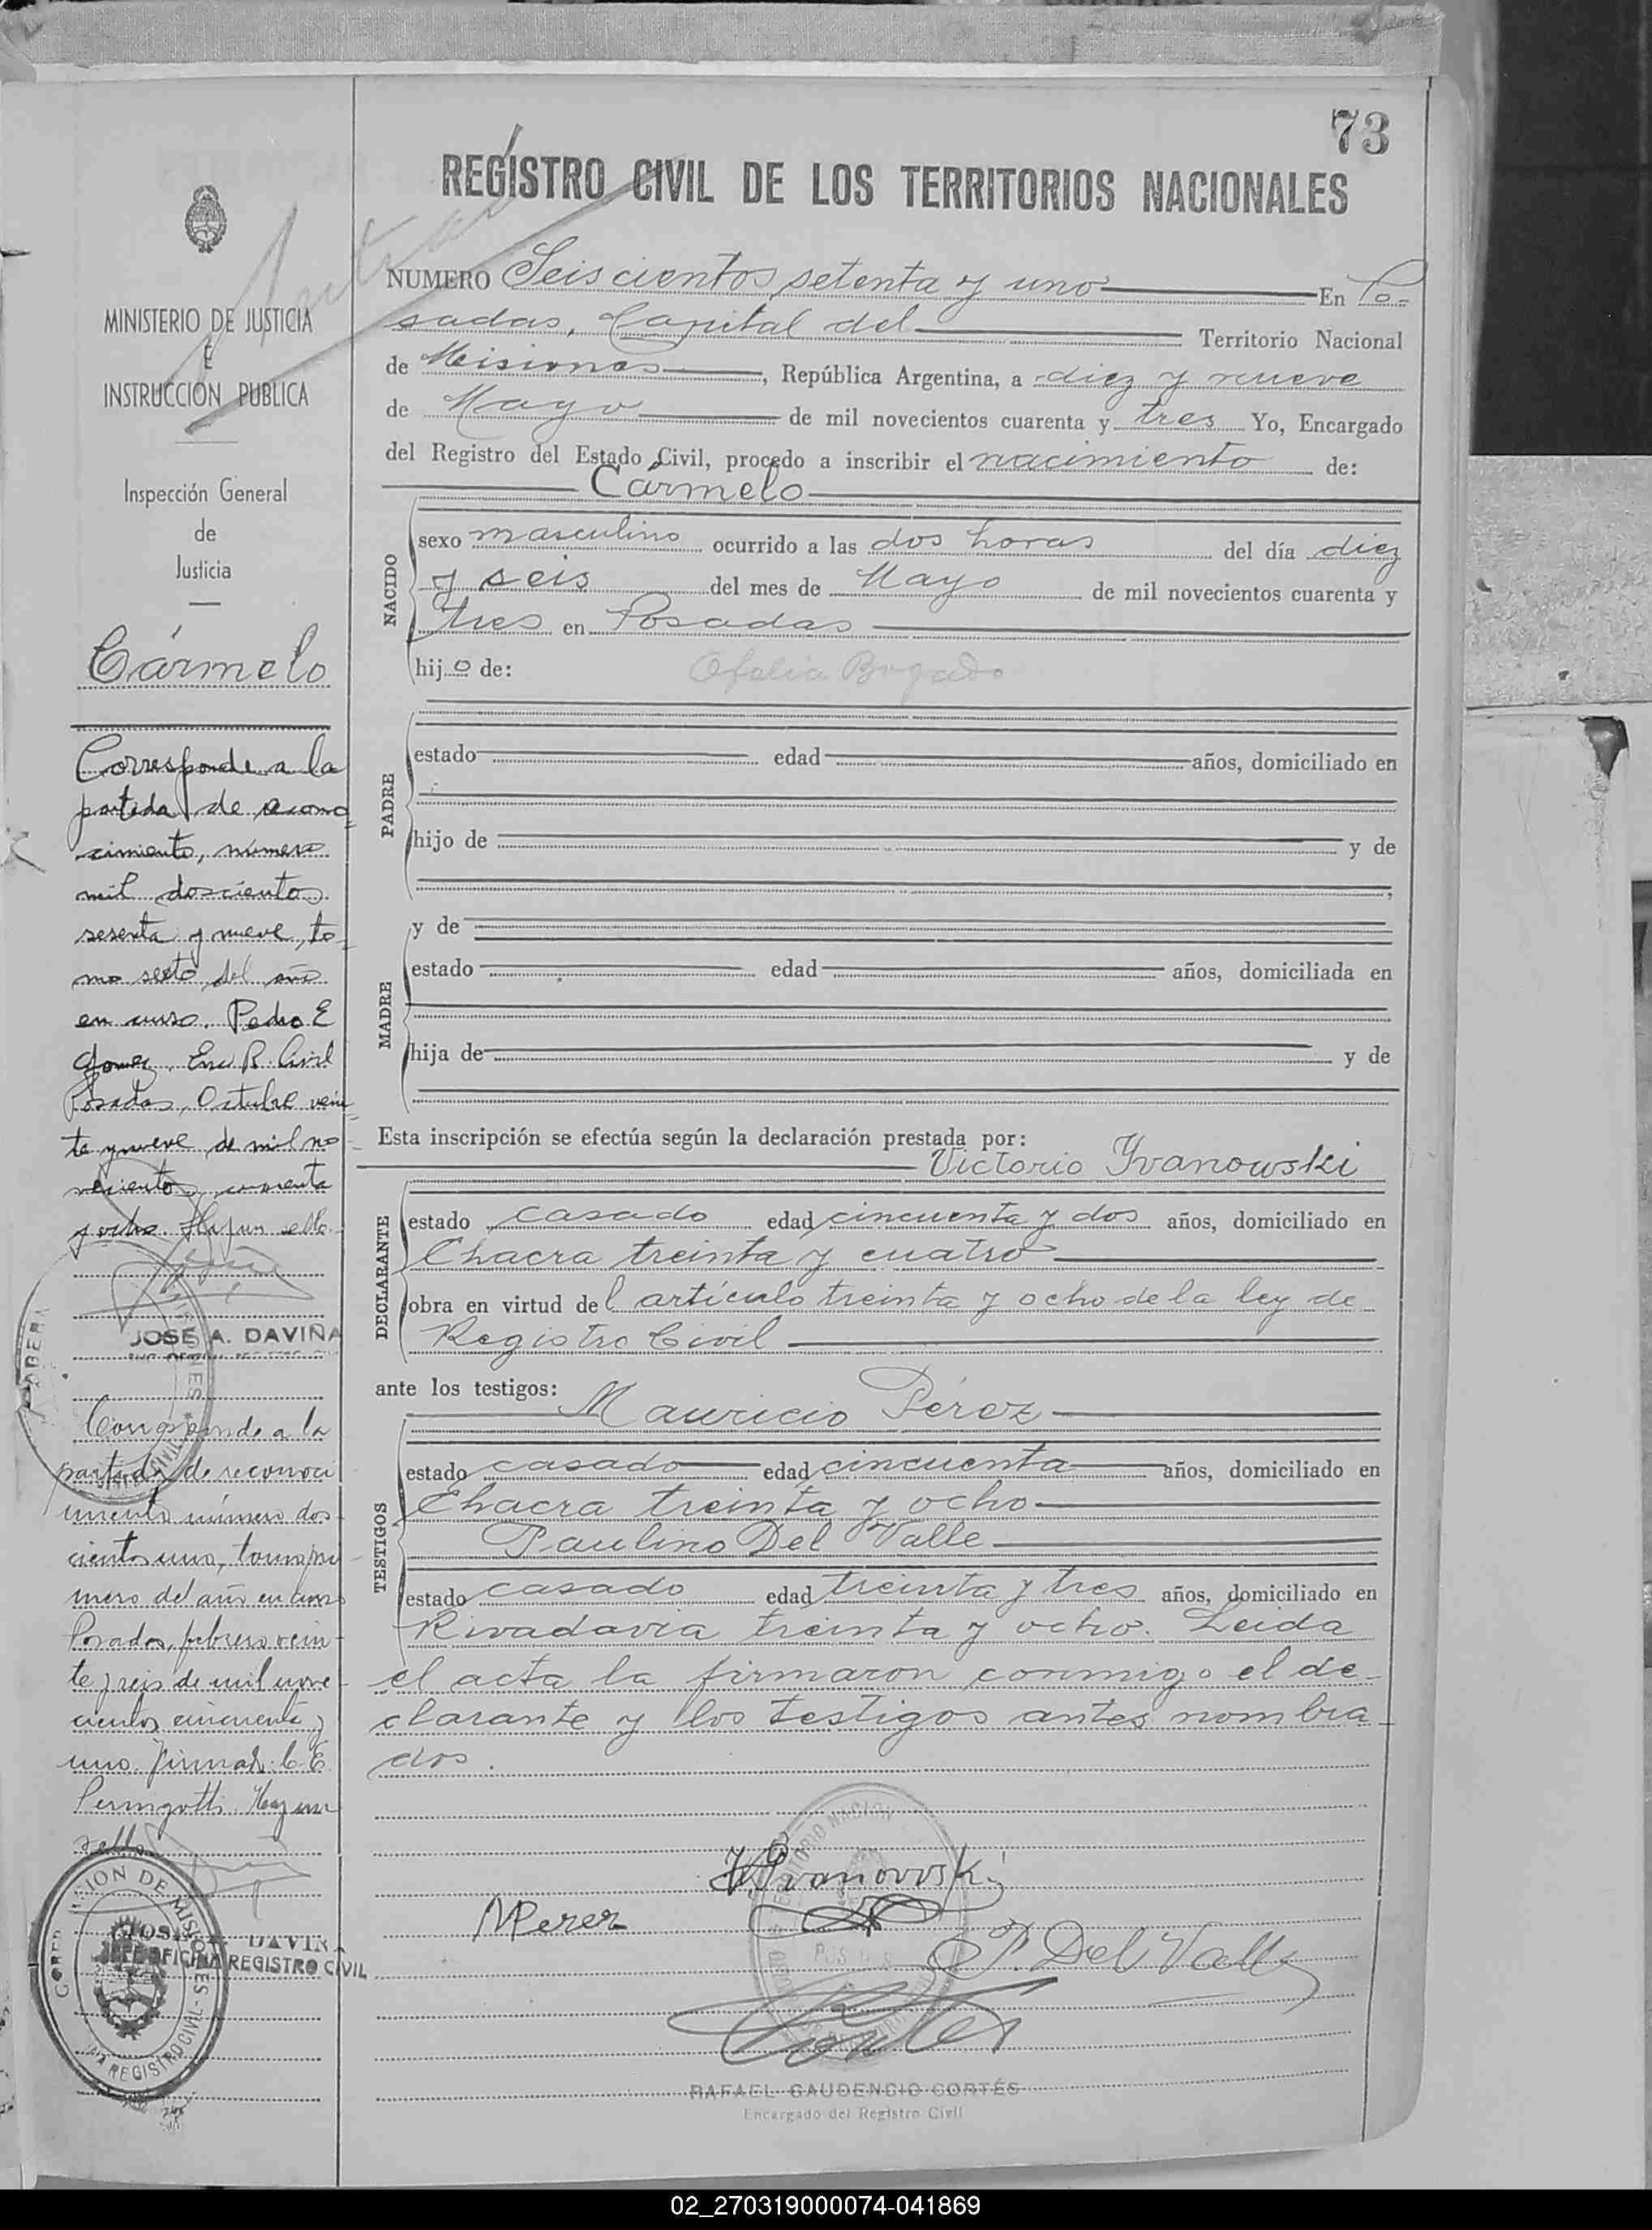 73
REGISTRO CIVIL DE LOS TERRITORIOS NACIONALES
MINISTERIO DE JUSTICIA
E
INSTRUCCIÓN PUBLICA
Inspección General
de
Justicia
Cármelo
Corresponde a la
partida de recono
cimiento, número
mil doscientos
sesenta y nueve, to-
mo sexto del año
en curso. Pedro E
Gomez. Enc R. Civil
Posadas, Octubre vein
te y nueve de mil no
vecientos cuarenta
y ocho. Hay un sello.
JOSÉ A. DAVIÑA
Corresponde a la
partida de reconoci
miento número dos-
cientos uno, tomo pri
mero del año en curso
Posadas, febrero vein-
te y seis de mil nove-
cientos cincuenta y
uno. Firmado: C. E.
Pernigotti. Hay un
sello.
JEFE OFICINA REGISTRO CIVIL
NUMERO Seiscientos setenta y uno En Po-
sadas, Capital del Territorio Nacional
de Misiones, República Argentina, a diez y nueve
de Mayo de mil novecientos cuarenta y tres Yo, Encargado
del Registro del Estado Civil, procedo a inscribir el nacimiento de:
Cármelo
NACIDO
sexo masculino ocurrido a las dos horas del día diez
y seis del mes de Mayo de mil novecientos cuarenta y
tres en Posadas
hijo de: Ofelia Bogado
PADRE
estado edad años, domiciliado en
hijo de y de
MADRE
y de
estado edad años, domiciliada en
hija de y de
Esta inscripción se efectúa según la declaración prestada por:
Victorio Yvanowski
DECLARANTE
estado casado edad cincuenta y dos años, domiciliado en
Chacra treinta y cuatro
obra en virtud del artículo treinta y ocho de la ley de
Registro Civil
ante los testigos:
Mauricio Pérez
TESTIGOS
estado casado edad cincuenta años, domiciliado en
Chacra treinta y ocho
Paulino Del Valle
estado casado edad treinta y tres años, domiciliado en
Rivadavia treinta y ocho. Leida
el acta la firmaron conmigo el de-
clarante y los testigos antes nombra-
dos.
V. Ivanowski
M Perez
P. Del Valle
Cortés
RAFAEL GAUDENCIO CORTÉS
Encargado del Registro Civil
02_270319000074-041869